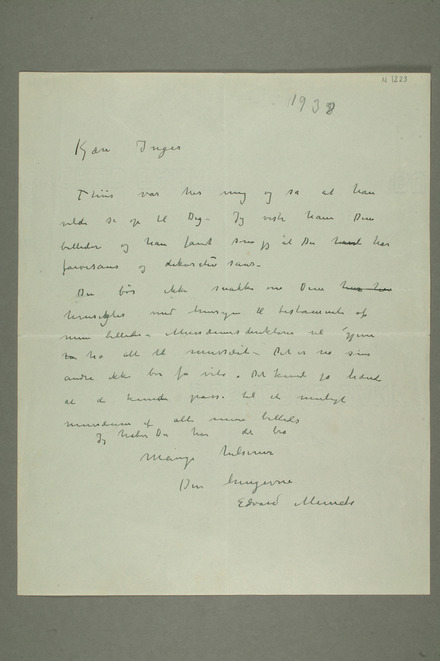 N 1223
1938
Kjære Inger
Thiis var hos mig og sa at han
vilde se op til Dig – Jeg viste ham Dine
billeder og han fandt som jeg at Du har
farvesans og dekorativ sans –
Du bør ikke snakke om Dine
med hensyn til bestemmelse af
mine billeder – Museumsdirektørene vil gjerne
ha alt til – Det er noe som
andre ikke bør få vite. Det kunde jo hænde
at de kunde passe til et muligt
museum af alle mine billeder
Jeg håber Du har det bra
Mange hilsener
Din hengivne
Edvard Munch